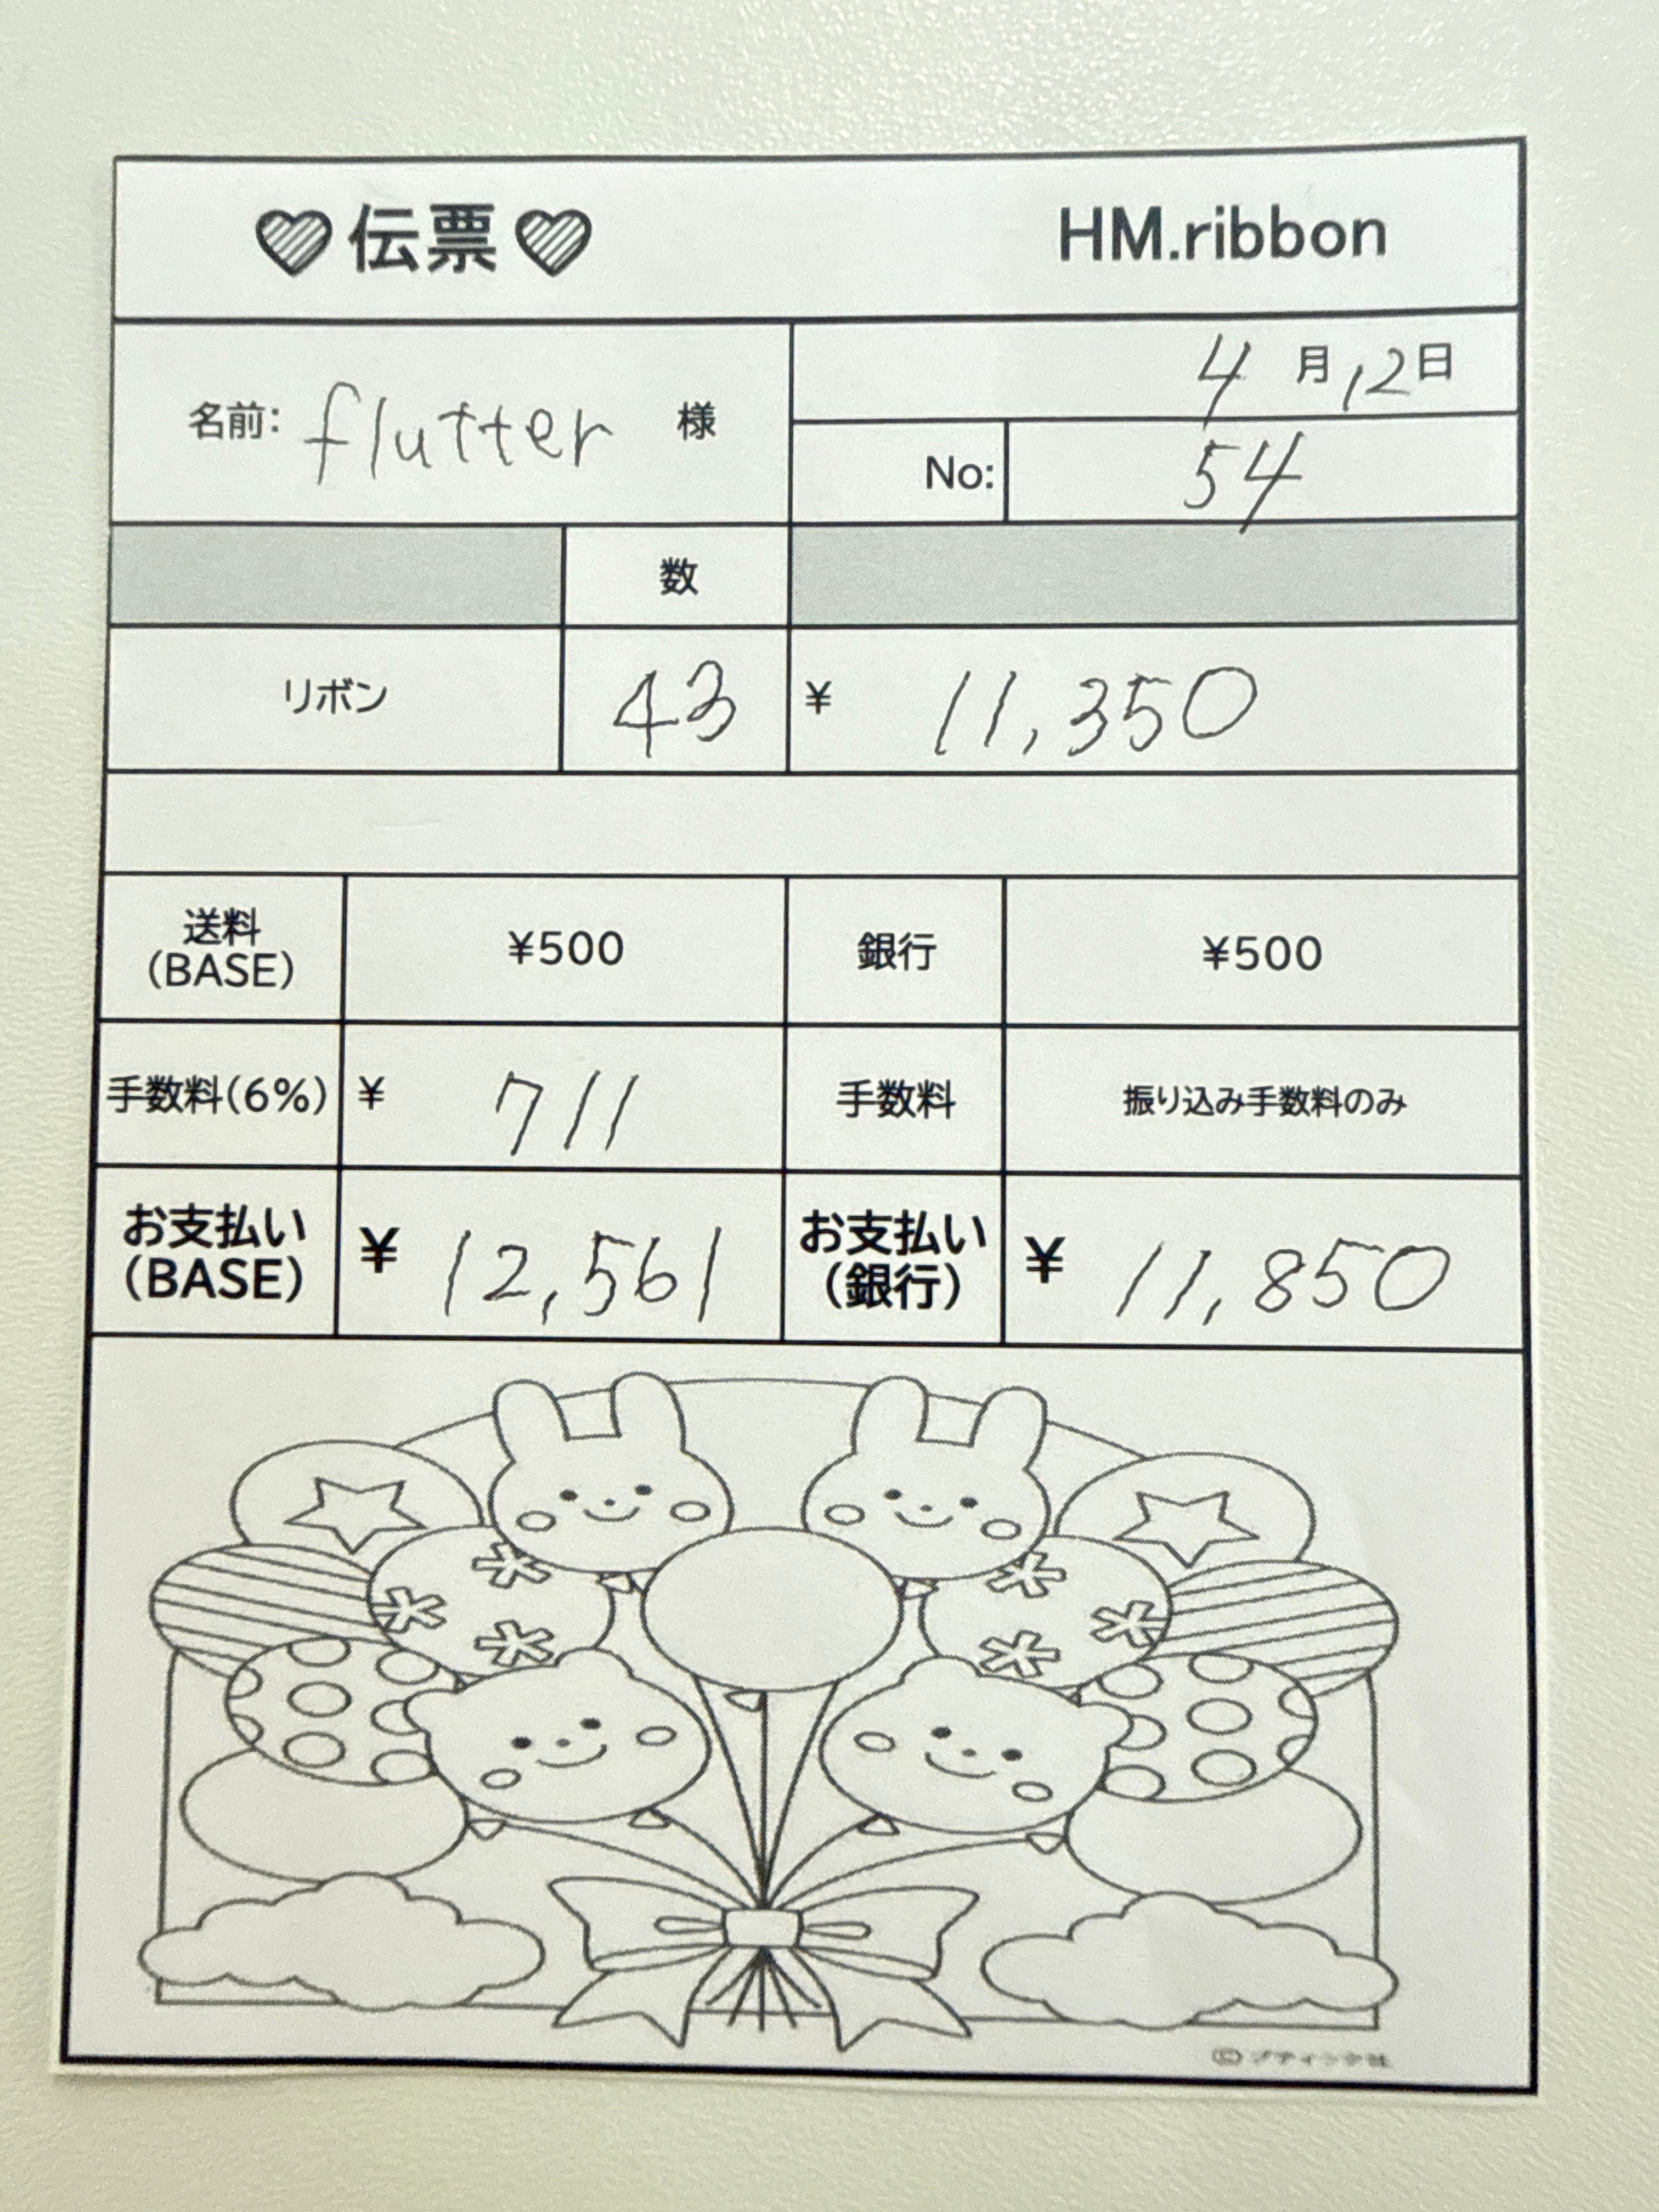 伝票 HM.ribbon
名前: flutter 様
4月12日
No: 54
数
リボン 43 ¥ 11,350
送料(BASE) ¥500 銀行 ¥500
手数料(6%) ¥ 711 手数料 振り込み手数料のみ
お支払い(BASE) ¥ 12,561 お支払い(銀行) ¥ 11,850
©ブティック社